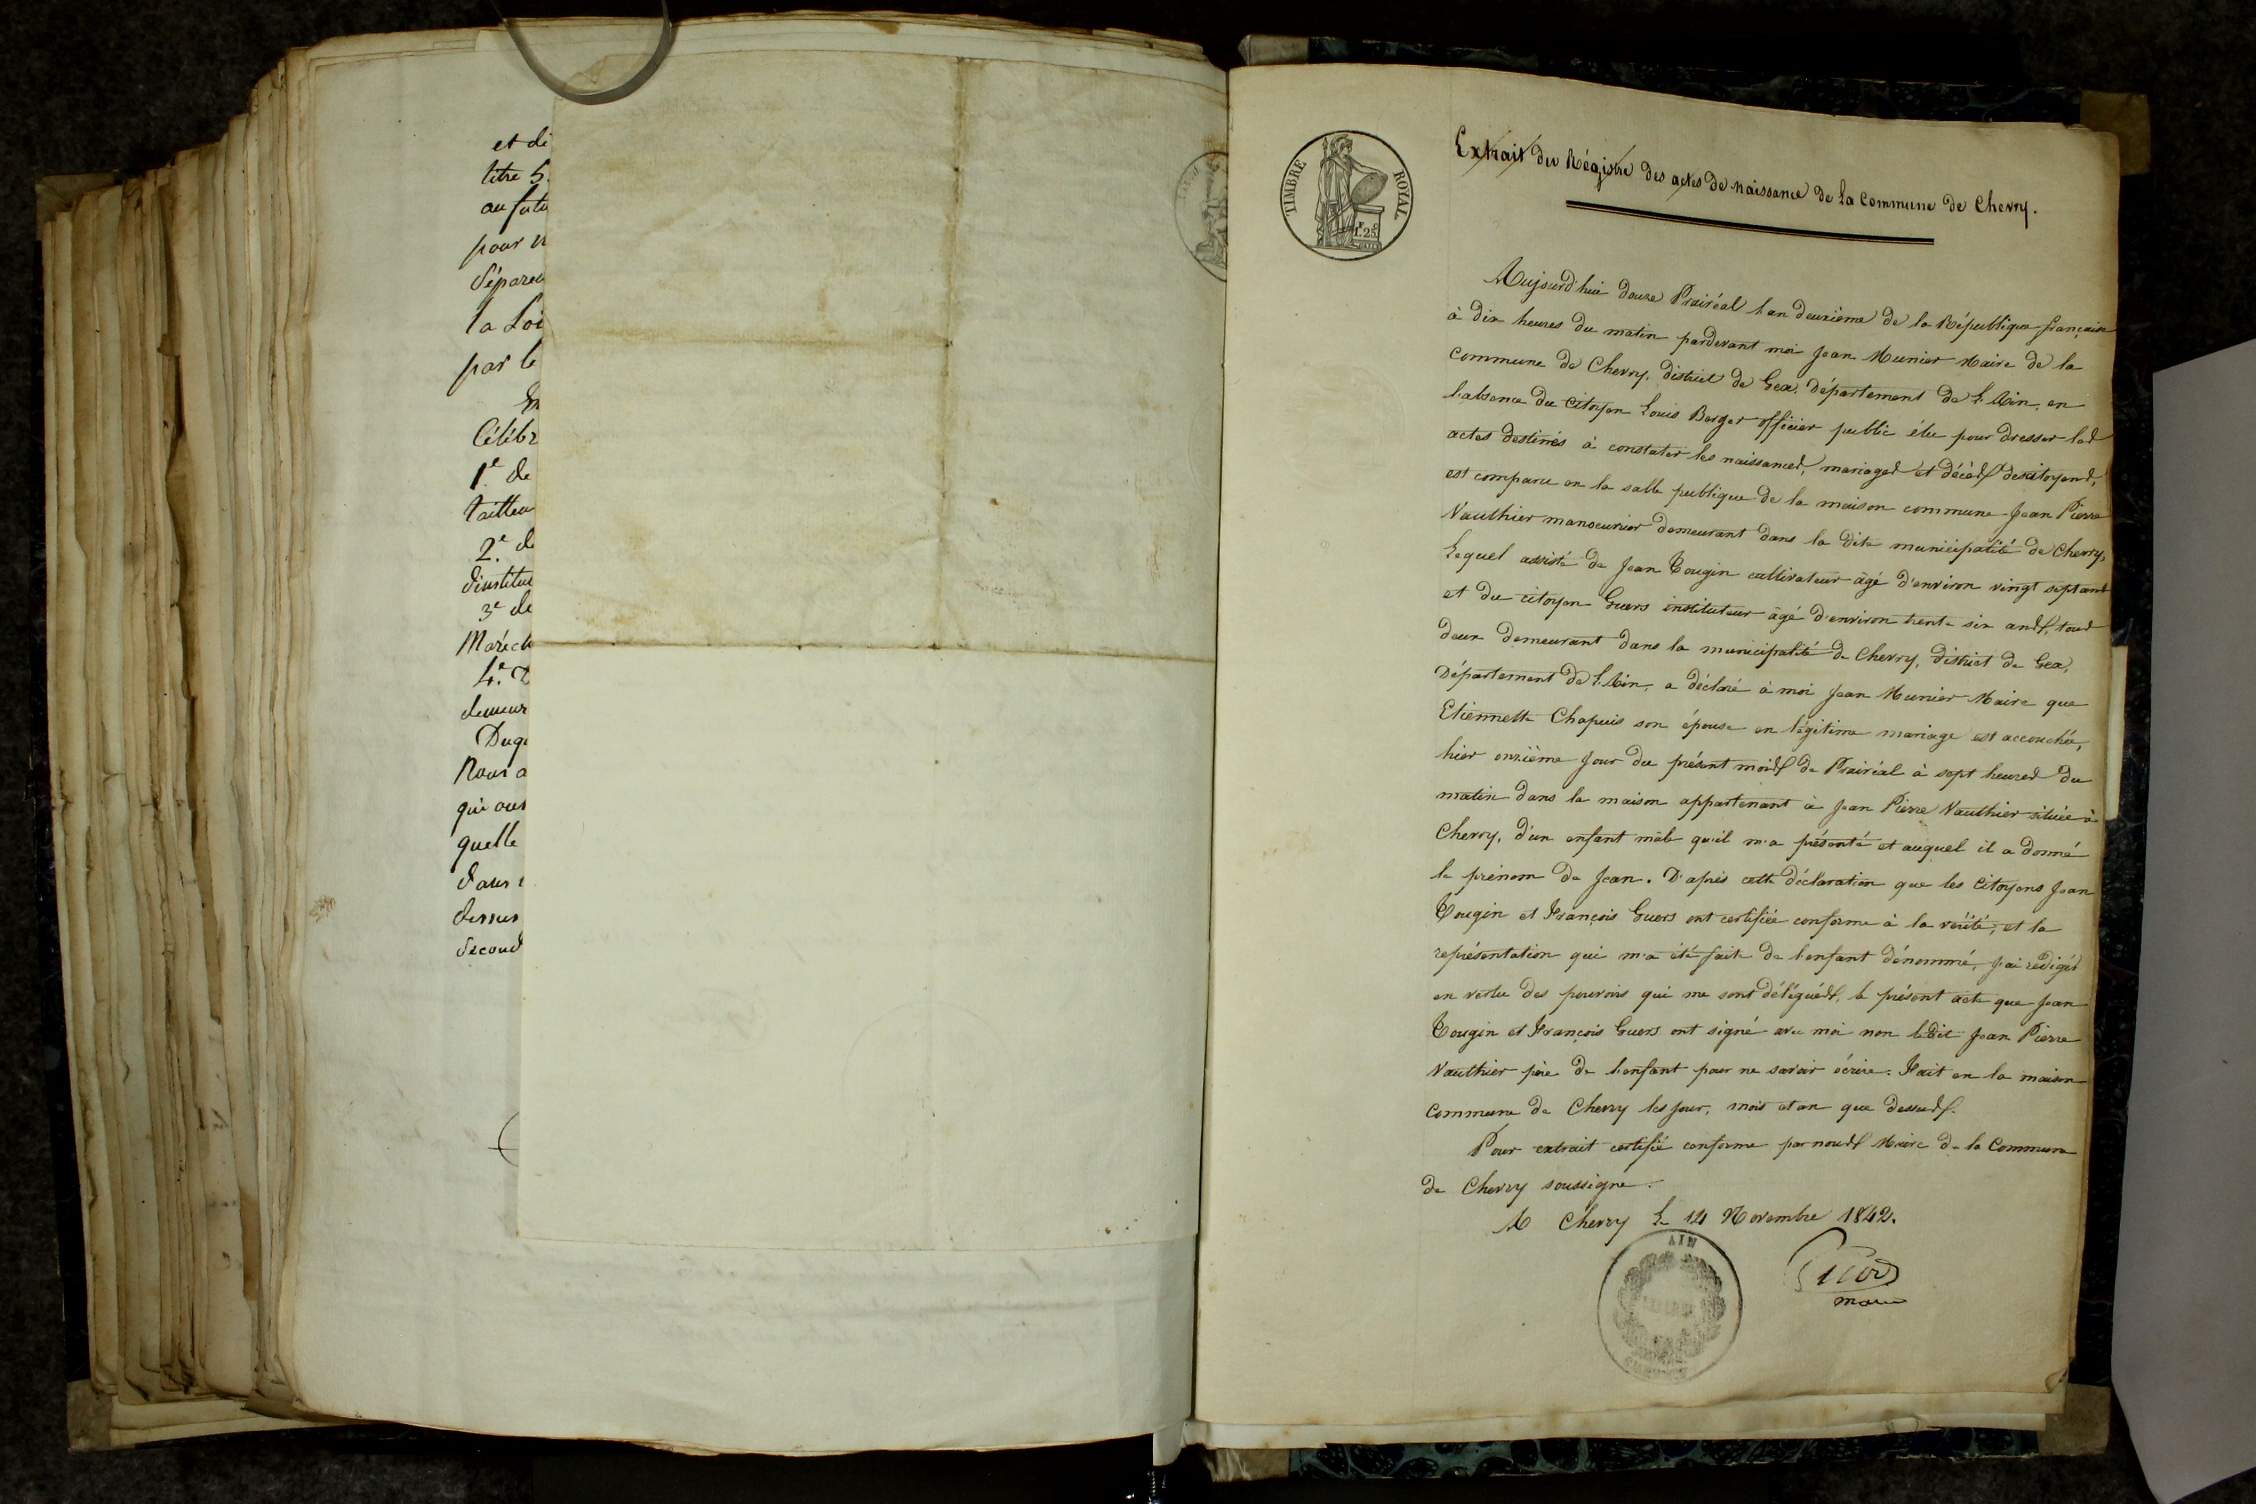 et di
titre 5.
au futu
pour
séparé
la Loi
par le
En
Célébr
1e. de
tailleu
2e. d
d'institut
3e de
Maréch
4e.
demeur
Nous a
qui ont
quelle
dans
dessus
second
TIMBRE ROYAL
1F. 25c.
Extrait du Régistre des actes de naissance de la Commune de Chevry.
Aujourd'hui douze Prairéal l'an deuxième de la République française
à dix heures du matin pardevant moi Jean Munier Maire de la
Commune de Chevry, district de Gex, Département de l'Ain, en
l'absence du Citoyen Louis Berger officier public élu pour dresser les
actes destinés à constater les naissances, mariages et décès des citoyens,
est comparu en la salle publique de la maison commune Jean Pierre
Vauthier manoeuvrier demeurant dans la dite municipalité de Chevry,
Lequel assisté de Jean Tougin cultivateur âgé d'environ vingt sept ans
et du citoyen Guers instituteur âgé d'environ trente six ans, tous
deux demeurant dans la municipalité de Chevry, district de Gex,
Département de l'Ain, a déclaré à moi Jean Munier Maire que
Etiennette Chapuis son épouse en légitime mariage est accouchée,
hier onzième jour du présent mois de Prairéal à sept heures du
matin dans la maison appartenant à Jean Pierre Vauthier située à
Chevry, d'un enfant mâle qu'il m'a présenté et auquel il a donné
le prénom de Jean. D'après cette déclaration que les Citoyens Jean
Tougin et François Guers ont certifiée conforme à la vérité, et la
représentation qui m'a été faite de l'enfant dénommé, j'ai rédigés
en vertu des pouvoirs qui me sont délégués, le présent acte que Jean
Tougin et François Guers ont signé avec moi non ledit Jean Pierre
Vauthier père de l'enfant pour ne savoir écrire. Fait en la maison
Commune de Chevry les jour, mois et an que dessus.
Pour extrait certifié conforme par nous Maire de la Commune
de Chevry soussigne.
A Chevry le 14 Novembre 1842.
AIN
maire